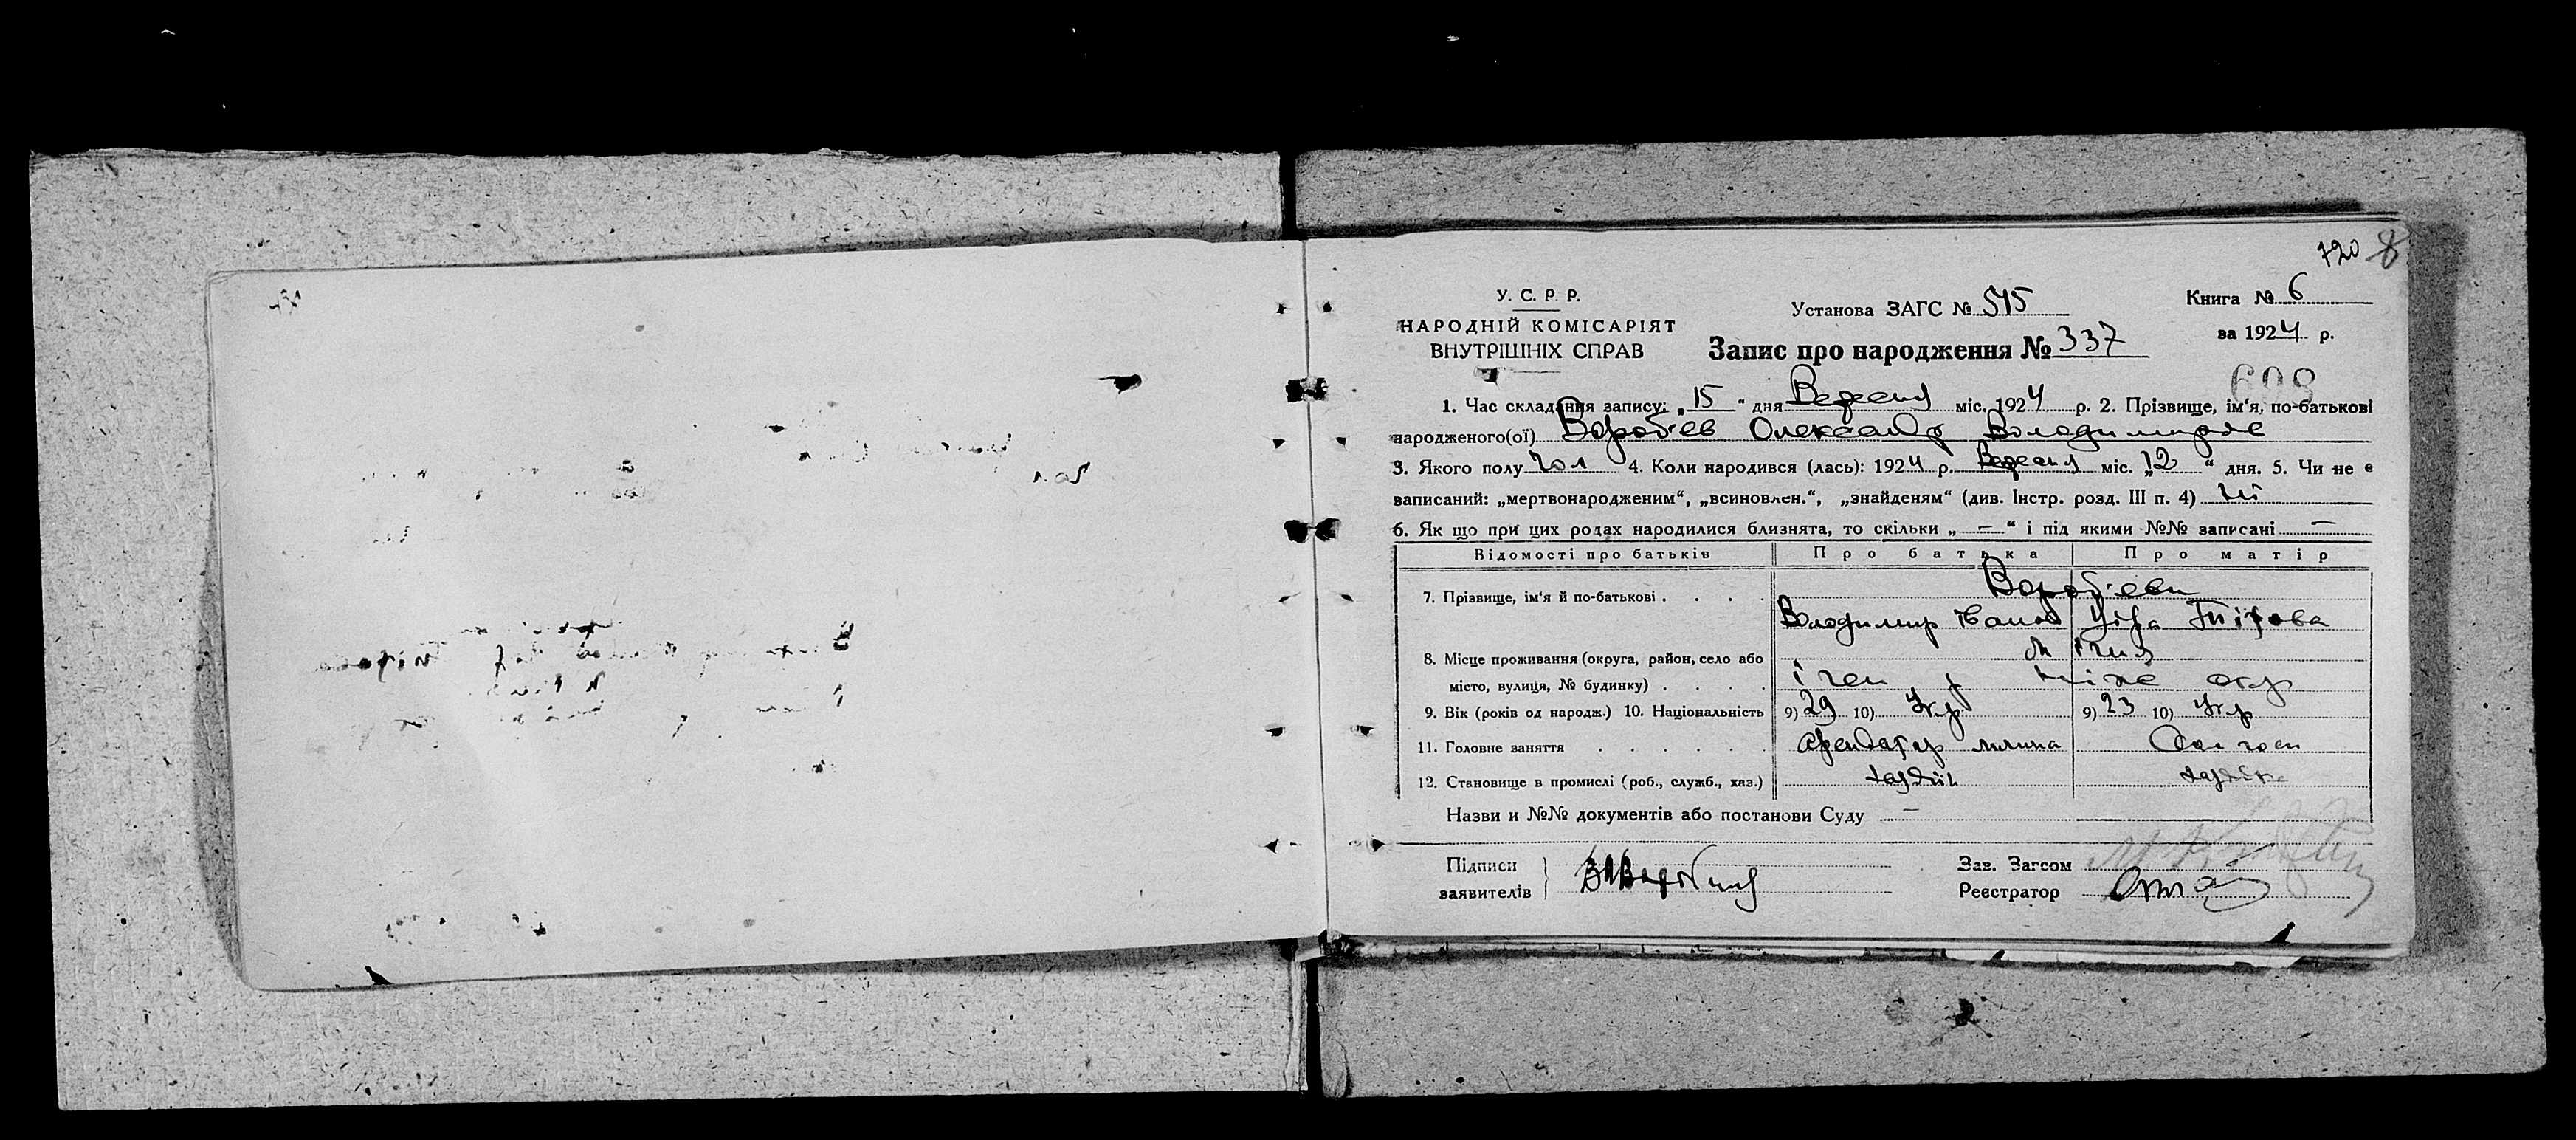 720 8
У. С. Р. Р.
НАРОДНІЙ КОМІСАРІЯТ
ВНУТРІШНІХ СПРАВ
Установа ЗАГС № 545
Запис про народження № 337
Книга № 6
за 1924 р.
608
1. Час складання запису: „15“ дня Вересня міс. 1924 р. 2. Прізвище, ім'я, по-батькові
народженого(ої) Вороб'єв Олександр Володимиров
3. Якого полу чол 4. Коли народився (лась): 1924 р. Вересня міс. „12“ дня. 5. Чи не є
записаний: „мертвонародженим“, „всиновлен.“, „знайденям“ (див. Інстр. розд. III п. 4) ні
6. Як що при цих родах народилися близнята, то скільки „ — “ і під якими №№ записані —
Відомості про батьків Про батька Про матір
7. Прізвище, ім'я й по-батькові . . . . Вороб'єви
Володимир Іванов Віра Петрова
8. Місце проживання (округа, район, село або м Ічня
місто, вулиця, № будинку) . . . . Ічен р Ніже окр
9. Вік (років од народж.) 10. Національність 9) 29 10) Укр 9) 23 10) Укр
11. Головне заняття . . . . . . Арендатор млина Дом госп
12. Становище в промислі (роб., служб., хаз.)
Назви и №№ документів або постанови Суду —
Підписи
заявителів
Зав. Загсом
Реєстратор